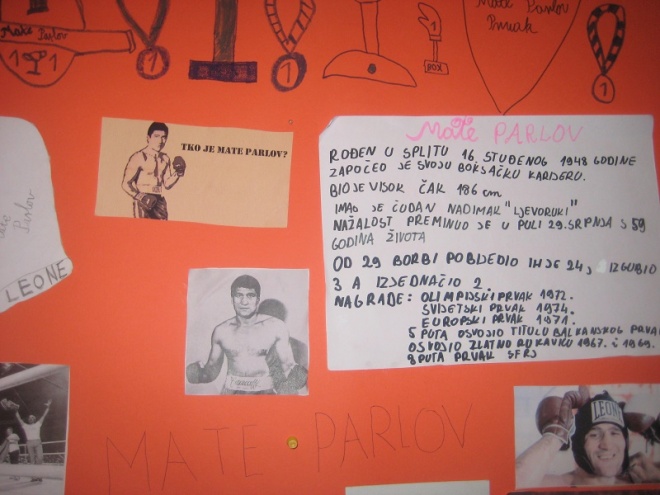 Mate Parlov
1 1
1
1
1
1
BOX
Mate Parlov
Prvak
1
TKO JE MATE PARLOV?
Mate PARLOV
ROĐEN U SPLITU 16. STUDENOG 1948 GODINE
ZAPOČEO JE SVOJU BOKSAČKU KARIJERU.
BIO JE VISOK ČAK 186 cm
IMAO JE ČUDAN NADIMAK "LJEVORUKI"
NAŽALOST PREMINUO JE U PULI 29. SRPNJA S 59
GODINA ŽIVOTA
OD 29 BORBI POBIJEDIO IH JE 24, IZGUBIO
3 A IZJEDNAČIO 2.
NAGRADE: OLIMPIJSKI PRVAK 1972.
SVIJETSKI PRVAK 1974.
EUROPSKI PRVAK 1971.
5 PUTA OSVOJIO TITULU BALKANSKOG PRVA
OSVOJIO ZLATNU RUKAVICU 1967. i 1969.
8 PUTA PRVAK SFRJ
Parlov
LEONE
LEONE
MATE PARLOV